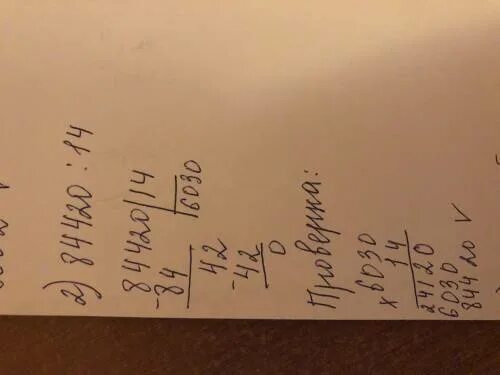 2) 84420 : 14
-84420|14
84 |6030
42
-42
0
Проверка:
x6030
14
24120
6030
84420 V